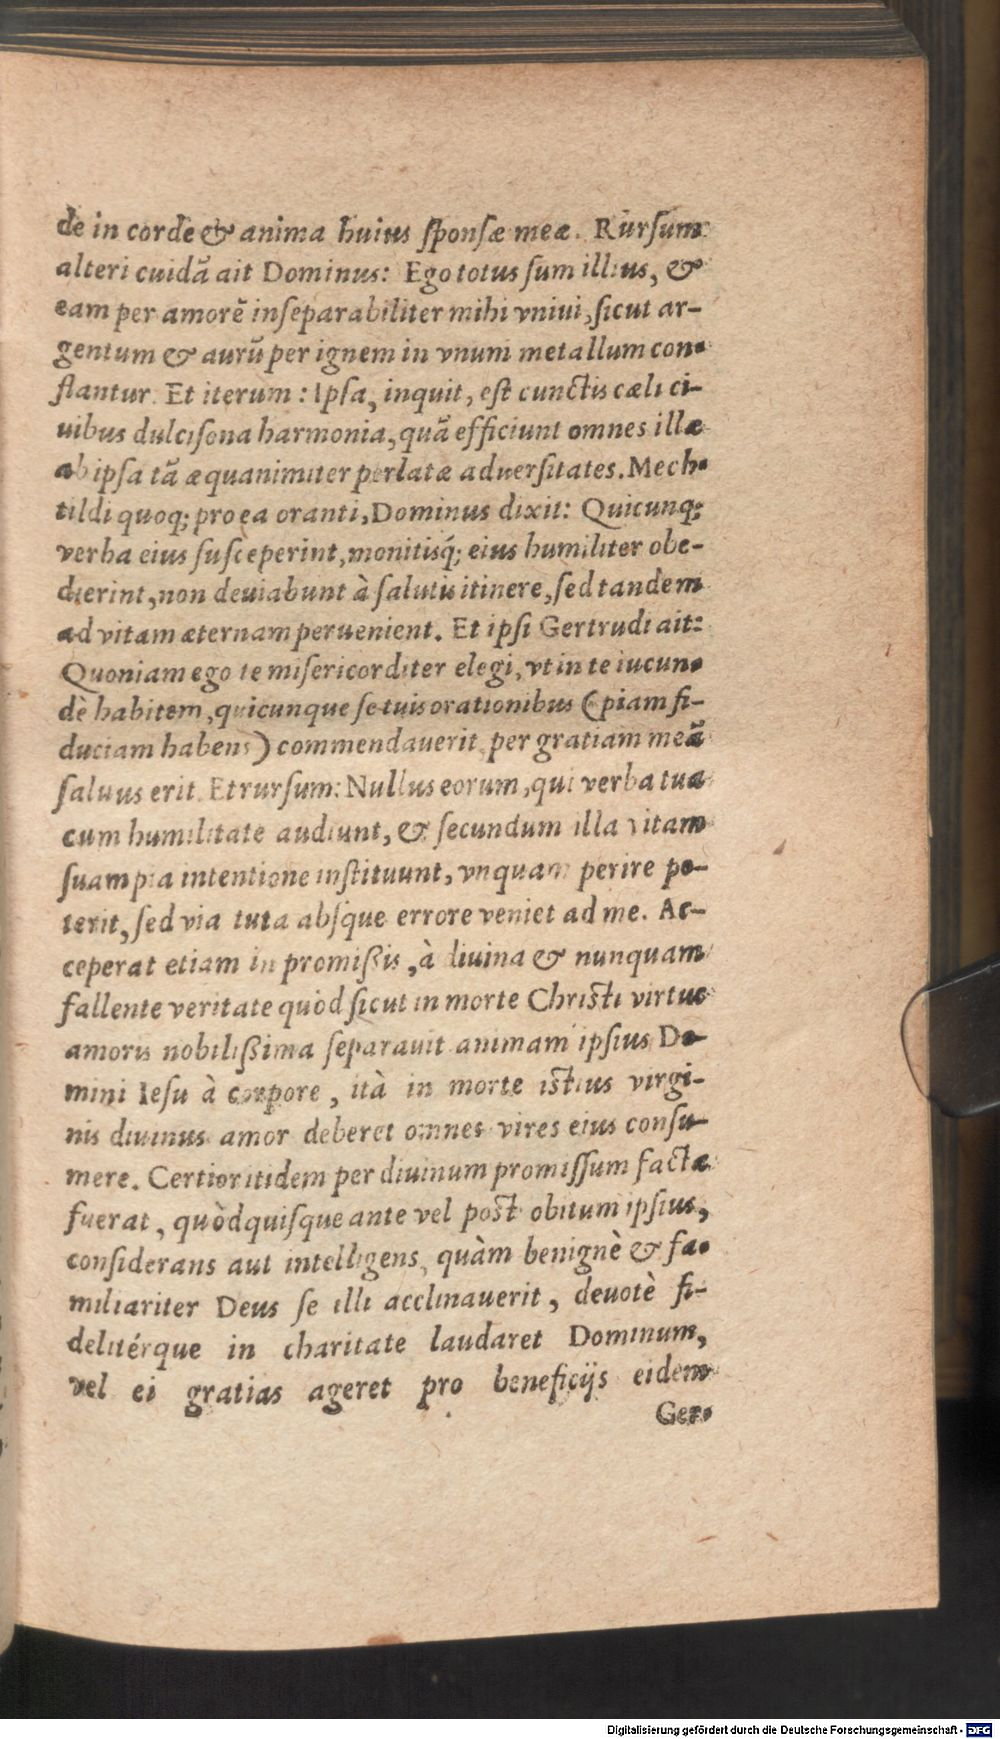 de in corde & anima huius ſponſæ meæ. Rursum
alteri cuidā ait Dominus: Ego totus ſum illius, &
eam per amorē inſeparabiliter mihi vniui, ſicut ar-
gentum & aurū per ignem in vnum metallum con-
flantur. Et iterum: Ipſa, inquit, eſt cunctis cæli ci-
uibus dulciſona harmonia, quā efficiunt omnes illæ
ab ipſa tā æquanimiter perlatæ aduerſitates. Mech-
tildi quoq; pro ea oranti, Dominus dixit: Quicunq;
verba eius ſuſceperint, monitisq́; eius humiliter obe-
dierint, non deuiabunt à ſalutis itinere, ſed tandem
ad vitam æternam peruenient. Et ipſi Gertrudi ait:
Quoniam ego te miſericorditer elegi, vt in te iucun-
dè habitem, quicunque ſe tuis orationibus (piam fi-
duciam habens) commendauerit, per gratiam meā
ſaluus erit. Et rurſum: Nullus eorum, qui verba tua
cum humilitate audiunt, & ſecundum illa vitam
ſuam pia intentione inſtituunt, vnquam perire po-
terit, ſed via tuta abſque errore veniet ad me. Ac-
ceperat etiam in promiſſis, à diuina & nunquam
fallente veritate quòd ſicut in morte Chriſti virtus
amoris nobiliſſima ſeparauit animam ipſius Do-
mini Ieſu à corpore, ità in morte iſtius virgi-
nis diuinus amor deberet omnes vires eius conſu-
mere. Certior itidem per diuinum promiſſum facta
fuerat, quòd quiſque ante vel poſt obitum ipſius,
conſiderans aut intelligens, quàm benignè & fa-
miliariter Deus ſe illi acclinauerit, deuotè fi-
delitérque in charitate laudaret Dominum,
vel ei gratias ageret pro beneficijs eidem
Ger-
Digitalisierung gefördert durch die Deutsche Forschungsgemeinschaft - DFG